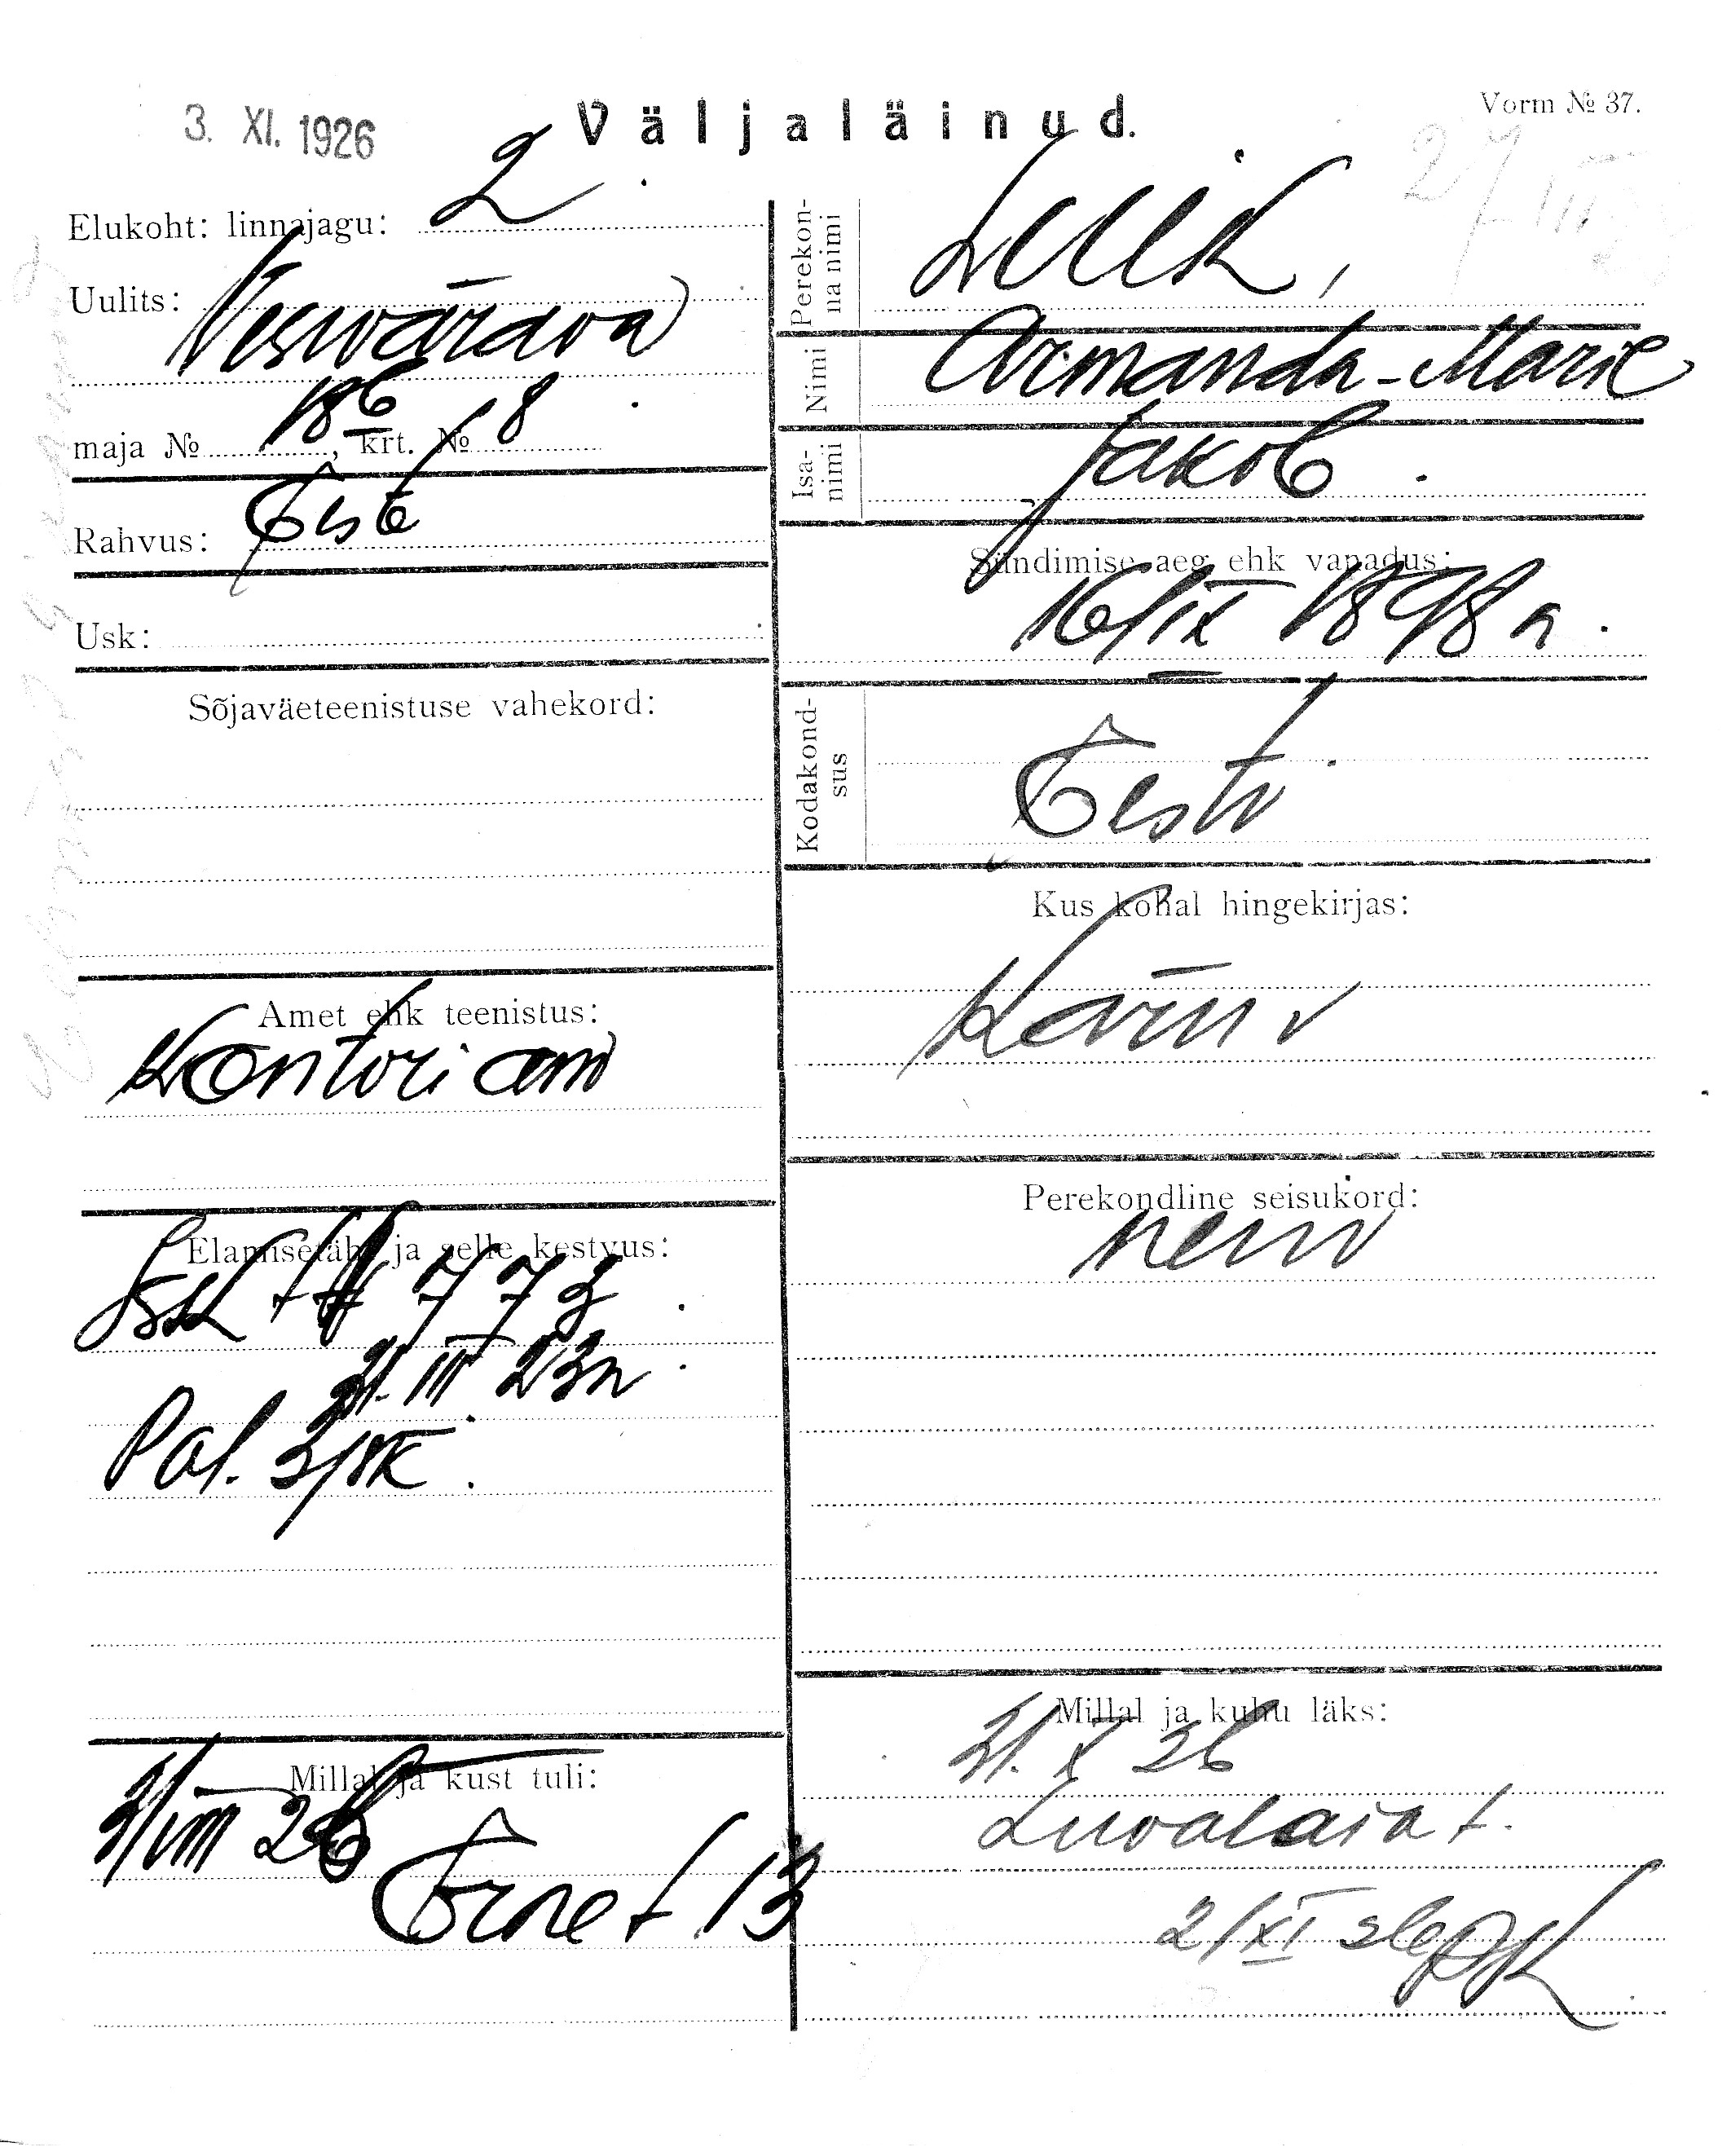 3. XI. 1926
Väljaläinud.
Vorm № 37.
Elukoht: linnajagu: 2
Uulits:
Vesivärava
maja № 186, krt. № 8
Rahvus: Eesti
Usk:
Sõjaväeteenistuse vahekord:
Amet ehk teenistus:
Kontori am
Elamisetäht ja selle kestvus:
Isik t № 773
21. III 23 a
Pol. 3/
Millal ja kust tuli:
VIII 26
Erne t 13
Perekonna nimi
Luik,
Nimi
Armanda-Marie
Isanimi
Jakob.
Sündimise aeg ehk vanadus:
16/IX 1898 a.
Kodakondsus
Eesti
Kus kohal hingekirjas:
Kärü v
Perekondline seisukord:
neiu
Millal ja kuhu läks:
21. X 26
t.
2/XI